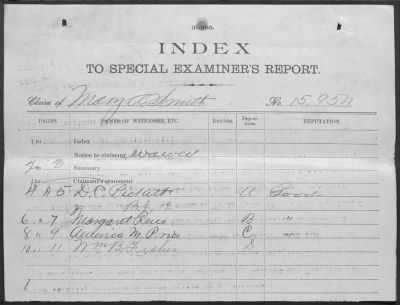 INDEX
TO SPECIAL EXAMINER'S REPORT.
Claim of Mary A Smith No. 15,954
PAGES. NAMES OF WITNESSES, ETC. Exhibits. Depositions. REPUTATION.
1 to Index
Notice to claimant waived
2 to 3 Summary
to Claimant's statement
4 to 5 D. C. A Good
6 " 7 Margaret B "
8 " 9 M. C "
10 " 11 Wm B. Fisher D